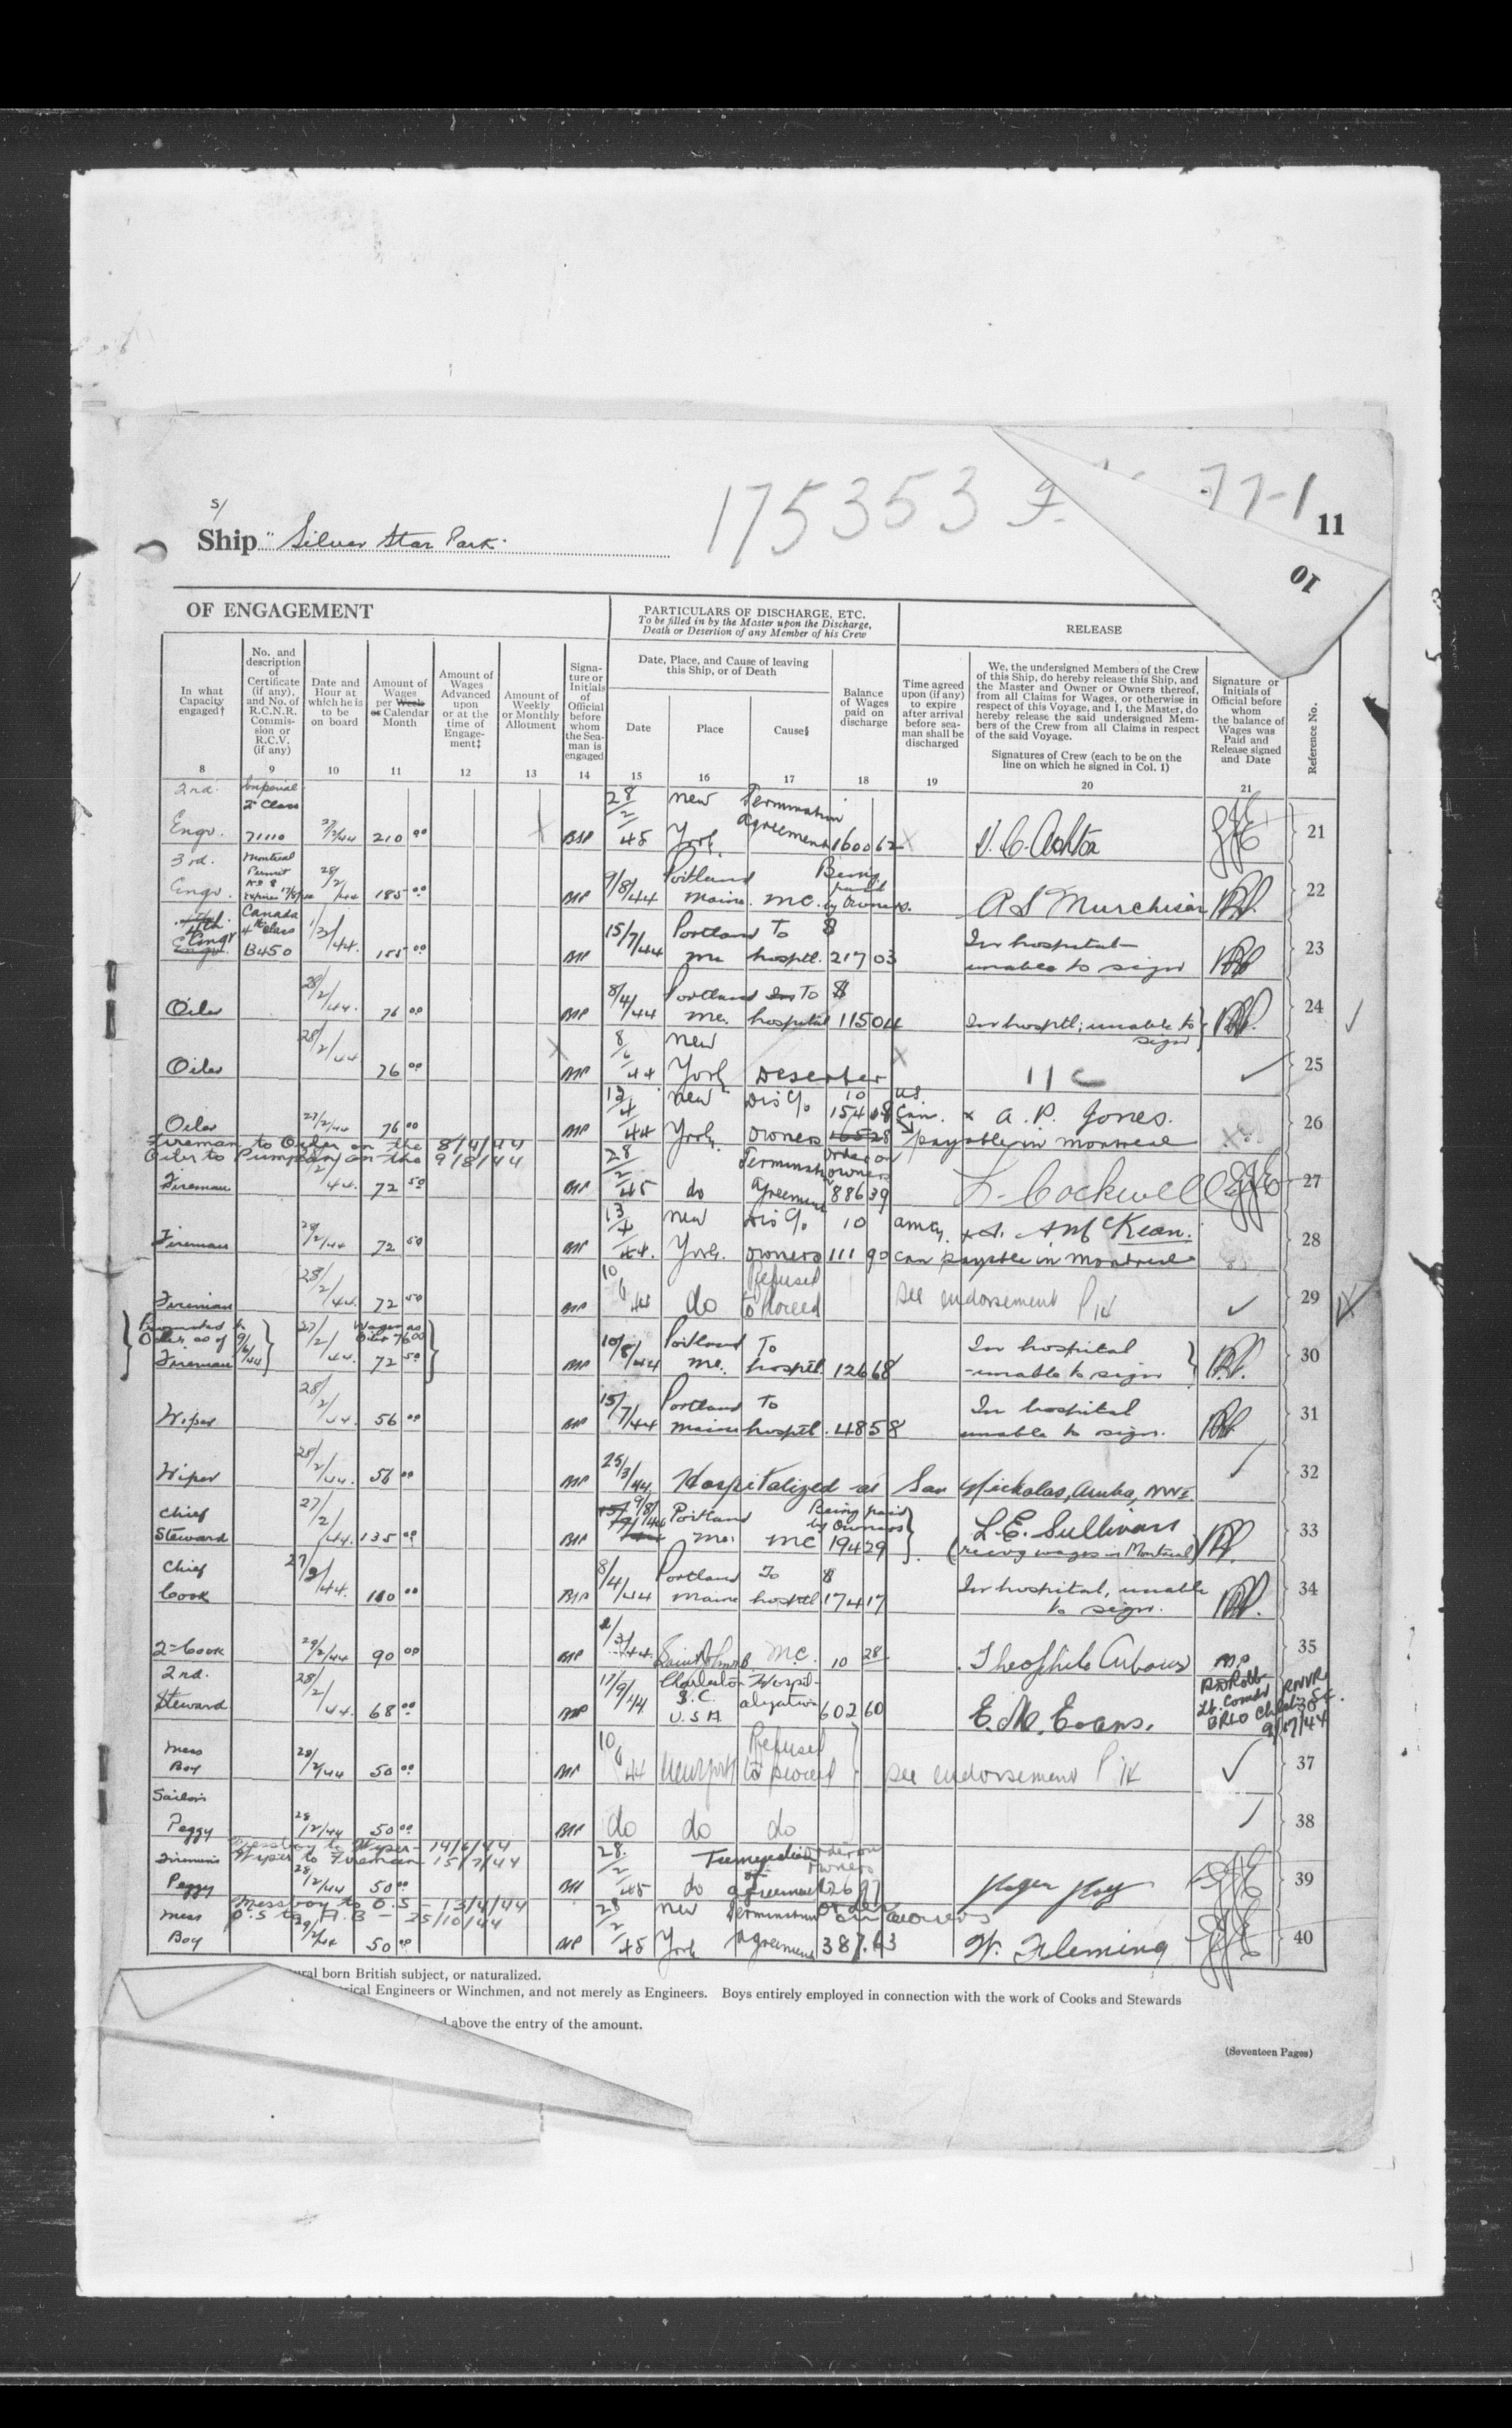 175353
77-1
11
10
S/
Ship "Silver Star Park"
OF ENGAGEMENT
PARTICULARS OF DISCHARGE, ETC.
To be filled in by the Master upon the Discharge,
Death or Desertion of any Member of his Crew
RELEASE
In what
Capacity
engaged†
No. and
description
of
Certificate
(if any),
and No. of
R.C.N.R.
Commis-
sion or
R.C.V.
(if any)
Date and
Hour at
which he is
to be
on board
Amount of
Wages
per Week
or Calendar
Month
Amount of
Wages
Advanced
upon
or at the
time of
Engage-
ment‡
Amount of
Weekly
or Monthly
Allotment
Signa-
ture or
Initials
of
Official
before
whom
the Sea-
man is
engaged
Date, Place, and Cause of leaving
this Ship, or of Death
Date
Place
Cause§
Balance
of Wages
paid on
discharge
Time agreed
upon (if any)
to expire
after arrival
before sea-
man shall be
discharged
We, the undersigned Members of the Crew
of this Ship, do hereby release this Ship, and
the Master and Owner or Owners thereof,
from all Claims for Wages, or otherwise in
respect of this Voyage, and I, the Master, do
hereby release the said undersigned Mem-
bers of the Crew from all Claims in respect
of the said Voyage.
Signatures of Crew (each to be on the
line on which he signed in Col. 1)
Signature or
Initials of
Official before
whom
the balance of
Wages was
Paid and
Release signed
and Date
Reference No.
8 9 10 11 12 13 14 15 16 17 18 19 20 21
2nd. Imperial 2nd Class 28/2 New Termination
Engr. 71110 27/2/44 210 00 45 York Agreement 1600 62 21
3rd. Montreal Permit No 8 28/2 Portland Being paid
Engr. /44 185 00 9/8/44 Maine. MC. by Owners. A S Murchison 22
4th Canada 4th Class 15/7/44 Portland To $ In hospital
Engr B450 1/3/44. 155 00 Me hosptl. 217 03 unable to sign 23
28/2 8/4/44 Portland To $
Oiler /44. 76 00 Me. hospital 115 04 In hosptl; unable to sign 24
28/2/44 8/6 New
Oiler 76 00 44 York Deserter 11 C 25
13/4 New Dis % 10 US
Oiler 27/2/44 76 00 44 York. owners 154 08 Can. x A. P. Jones. 26
payable in Montreal
Fireman to Oiler on the 8/4/44
Oiler to Pumpman on the 9/8/44
28/2 Termination order on owners
Fireman /2/44. 72 50 45 do Agreement 886 39 L. Cockwell 27
13/4 New Dis % 10 Amcy. A McKean.
Fireman 28/2/44 72 50 44. York. owners 111 90 Can payable in Montreal 28
28/2 10/6 Refused
Fireman /44. 72 50 44 do to Proceed see endorsement P 14 29
Promoted to Oiler as of 9/6/44 27/2 Wages as Oiler 76 00 10/8/44 Portland To In hospital
Fireman /44. 72 50 Me. hosptl. 126 68 unable to sign 30
28/2 15/7/44 Portland To In hospital
Wiper /44. 56 00 Maine hosptl. 48 58 unable to sign. 31
Wiper 28/2/44. 56 00 25/3/44 Hospitalized at San Nickolas, Aruba, NWI. 32
Chief 27/2 9/8/44 Portland Being paid by Owners L. E. Sullivan
Steward /44. 135 00 Me. MC 194 29 (recvg wages in Montreal) 33
Chief 27/2 8/4/44 Portland To $ In hospital, unable
Cook /44. 110 00 Maine hosptl 174 17 to sign. 34
2nd Cook 29/2/44 90 00 2/3/44. Saint John N.B. M.C. 10 28 35
2nd. 28/2 17/9/44 Charleston Hospit-
Steward /44. 68 00 S.C. U.S.A. alization 602 60 E. M. Evans. Lt. Comdr RNVR
Mess 10/6 Refused
Boy 28/2/44 50 00 44 New York to proceed see endorsement P 14 37
Sailors
Peggy 28/2/44 50 00 do do do 38
Messboy to Wiper - 14/6/44
Wiper to Fireman 15/7/44
Firemen's 28/2 order on owners
Peggy 28/2/44 50 00 45 do of agreement 39
Messboy to O.S - 13/4/44
O.S to A.B - 25/10/44
Mess 28/2 New Termination order on owners
Boy 29/2/44 50 00 45 York Agreement 387.63 W. Fleming 40
ural born British subject, or naturalized.
rical Engineers or Winchmen, and not merely as Engineers. Boys entirely employed in connection with the work of Cooks and Stewards
d above the entry of the amount.
(Seventeen Pages)